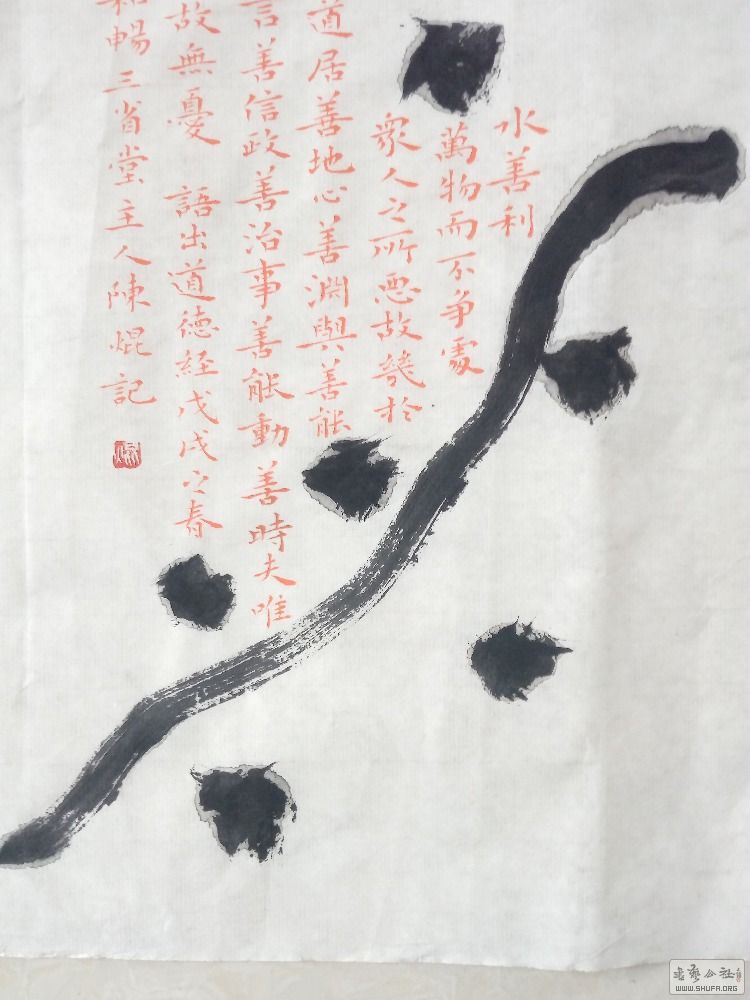 水善利
萬物而不争處
衆人之所惡故㡬於
道居善地心善淵與善能
言善信政善治事善能動善時夫唯
故無憂 語出道德経戊戌之春
和暢三省堂主人陳焜記
书艺公社
WWW.SHUFA.ORG